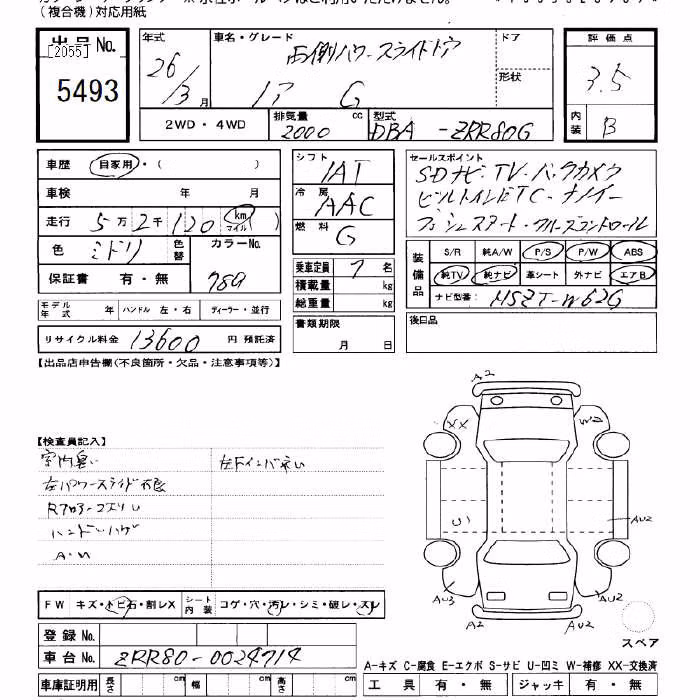 (複合機)対応用紙
出品No.
[2055]
5493
年式 車名・グレード ドア
26/3月
両側パワースライドドア
ノア G
形状
2WD・4WD
排気量 2000 cc
型式 DBA-ZRR80G
評価点
3.5
内装 B
車歴 自家用・( )
車検 年 月
走行 5万2千120 km マイル( )
色 ミドリ 色替 カラーNo. 789
保証書 有・無
モデル年式 年 ハンドル 左・右 ディーラー・並行
リサイクル料金 13600 円 預託済
シフト IAT
冷房 AAC
燃料 G
乗車定員 7 名
積載量 kg
総重量 kg
書類期限
月 日
セールスポイント
SDナビ・TV・バックカメラ
ビルトインETC・ナノイー
プッシュスタート・クルーズコントロール
装備品
S/R 純A/W P/S P/W ABS
純TV 純ナビ 革シート 外ナビ エアB
ナビ型番: NSZT-W62G
後日品
【出品店申告欄(不良箇所・欠品・注意事項等)】
【検査員記入】
室内臭い 左Fインパネい
左パワースライド不良
ハンドルハゲ
A2
XX W2
U1 AU2
AU3 AU2
A2 AU2
スペア
FW キズ・トビ石・割レX シート内装 コゲ・穴・汚レ・シミ・破レ・スレ
登録No.
車台No. ZRR80-0024714
車庫証明用 長さ cm 幅 cm 高さ cm
A-キズ C-腐食 E-エクボ S-サビ U-凹ミ W-補修 XX-交換済
工具 有・無 ジャッキ 有・無